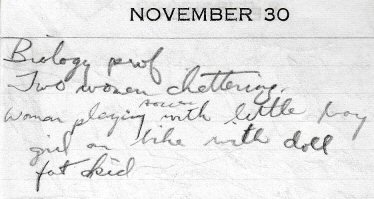 NOVEMBER 30
Biology prof
Two women chattering.
soccer
Woman playing with little boy
girl on bike with doll
fat kid